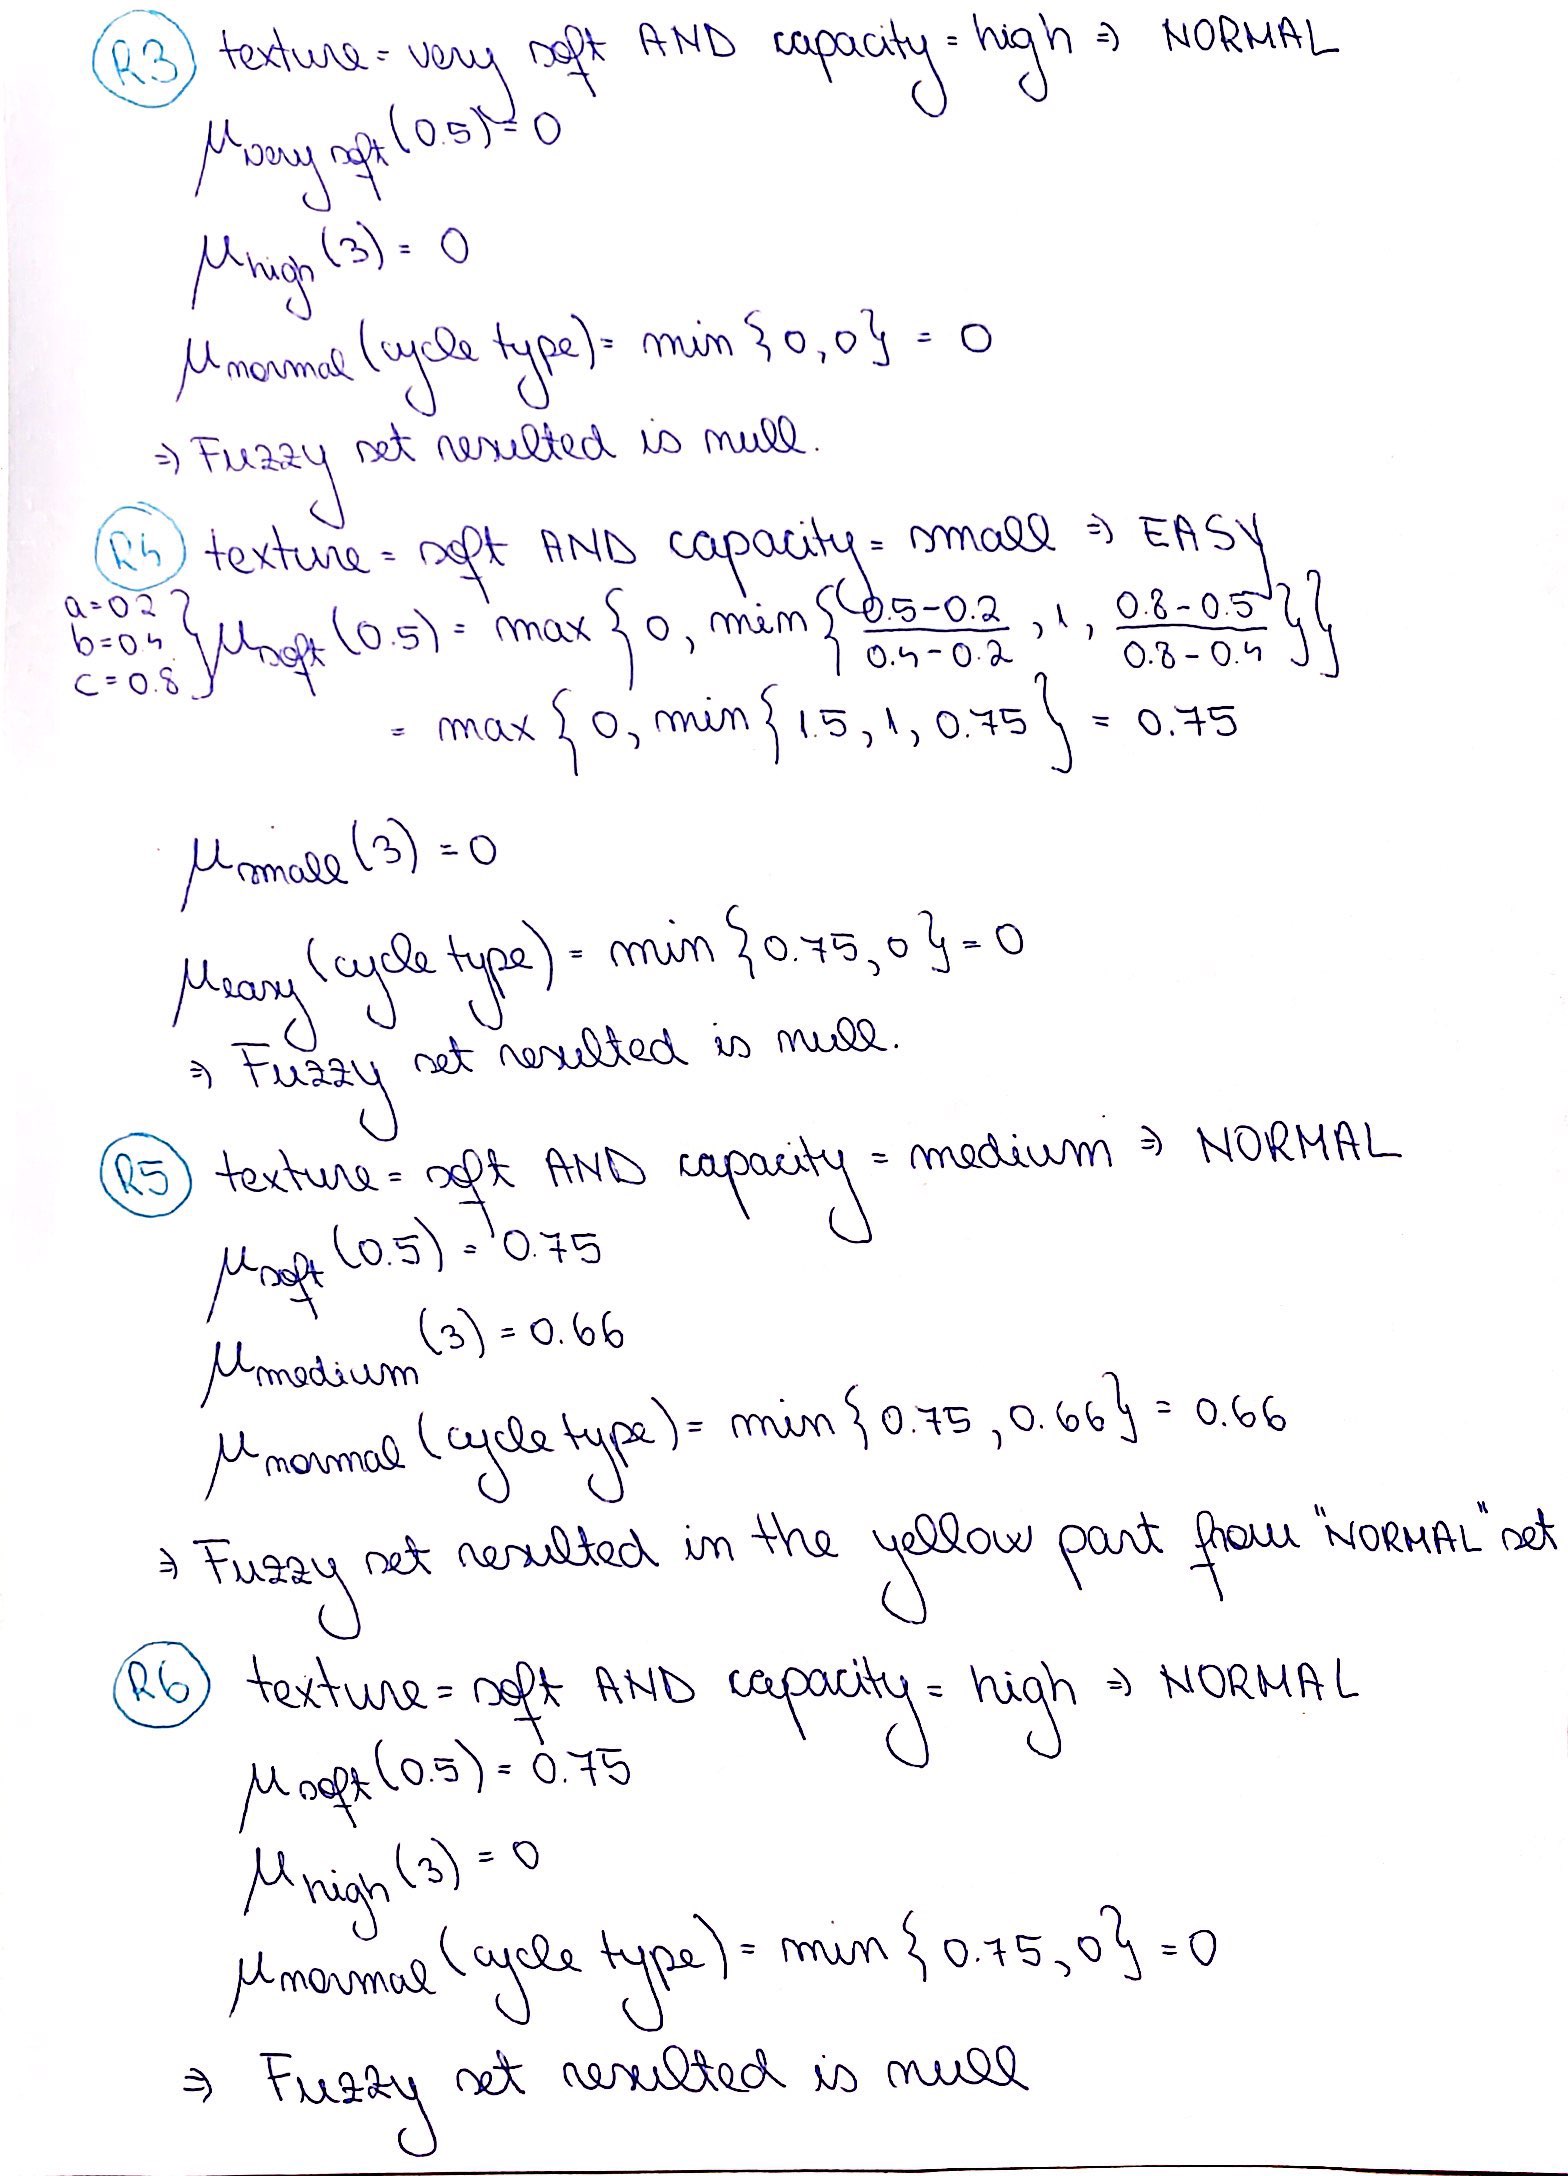 R3 texture = very soft AND capacity = high ⇒ NORMAL
μ very soft (0.5) = 0
μ high (3) = 0
μ normal (cycle type) = min {0,0} = 0
⇒ Fuzzy set resulted is null.
R4 texture = soft AND capacity = small ⇒ EASY
a=0.2
b=0.4
c=0.8
} μ soft (0.5) = max {0, min {(0.5-0.2)/(0.4-0.2), 1, (0.8-0.5)/(0.8-0.4)}}
= max {0, min {1.5, 1, 0.75} = 0.75
μ small (3) = 0
μ easy (cycle type) = min {0.75, 0} = 0
⇒ Fuzzy set resulted is null.
R5 texture = soft AND capacity = medium ⇒ NORMAL
μ soft (0.5) = 0.75
μ medium (3) = 0.66
μ normal (cycle type) = min {0.75, 0.66} = 0.66
⇒ Fuzzy set resulted in the yellow part from "NORMAL" set
R6 texture = soft AND capacity = high ⇒ NORMAL
μ soft (0.5) = 0.75
μ high (3) = 0
μ normal (cycle type) = min {0.75, 0} = 0
⇒ Fuzzy set resulted is null